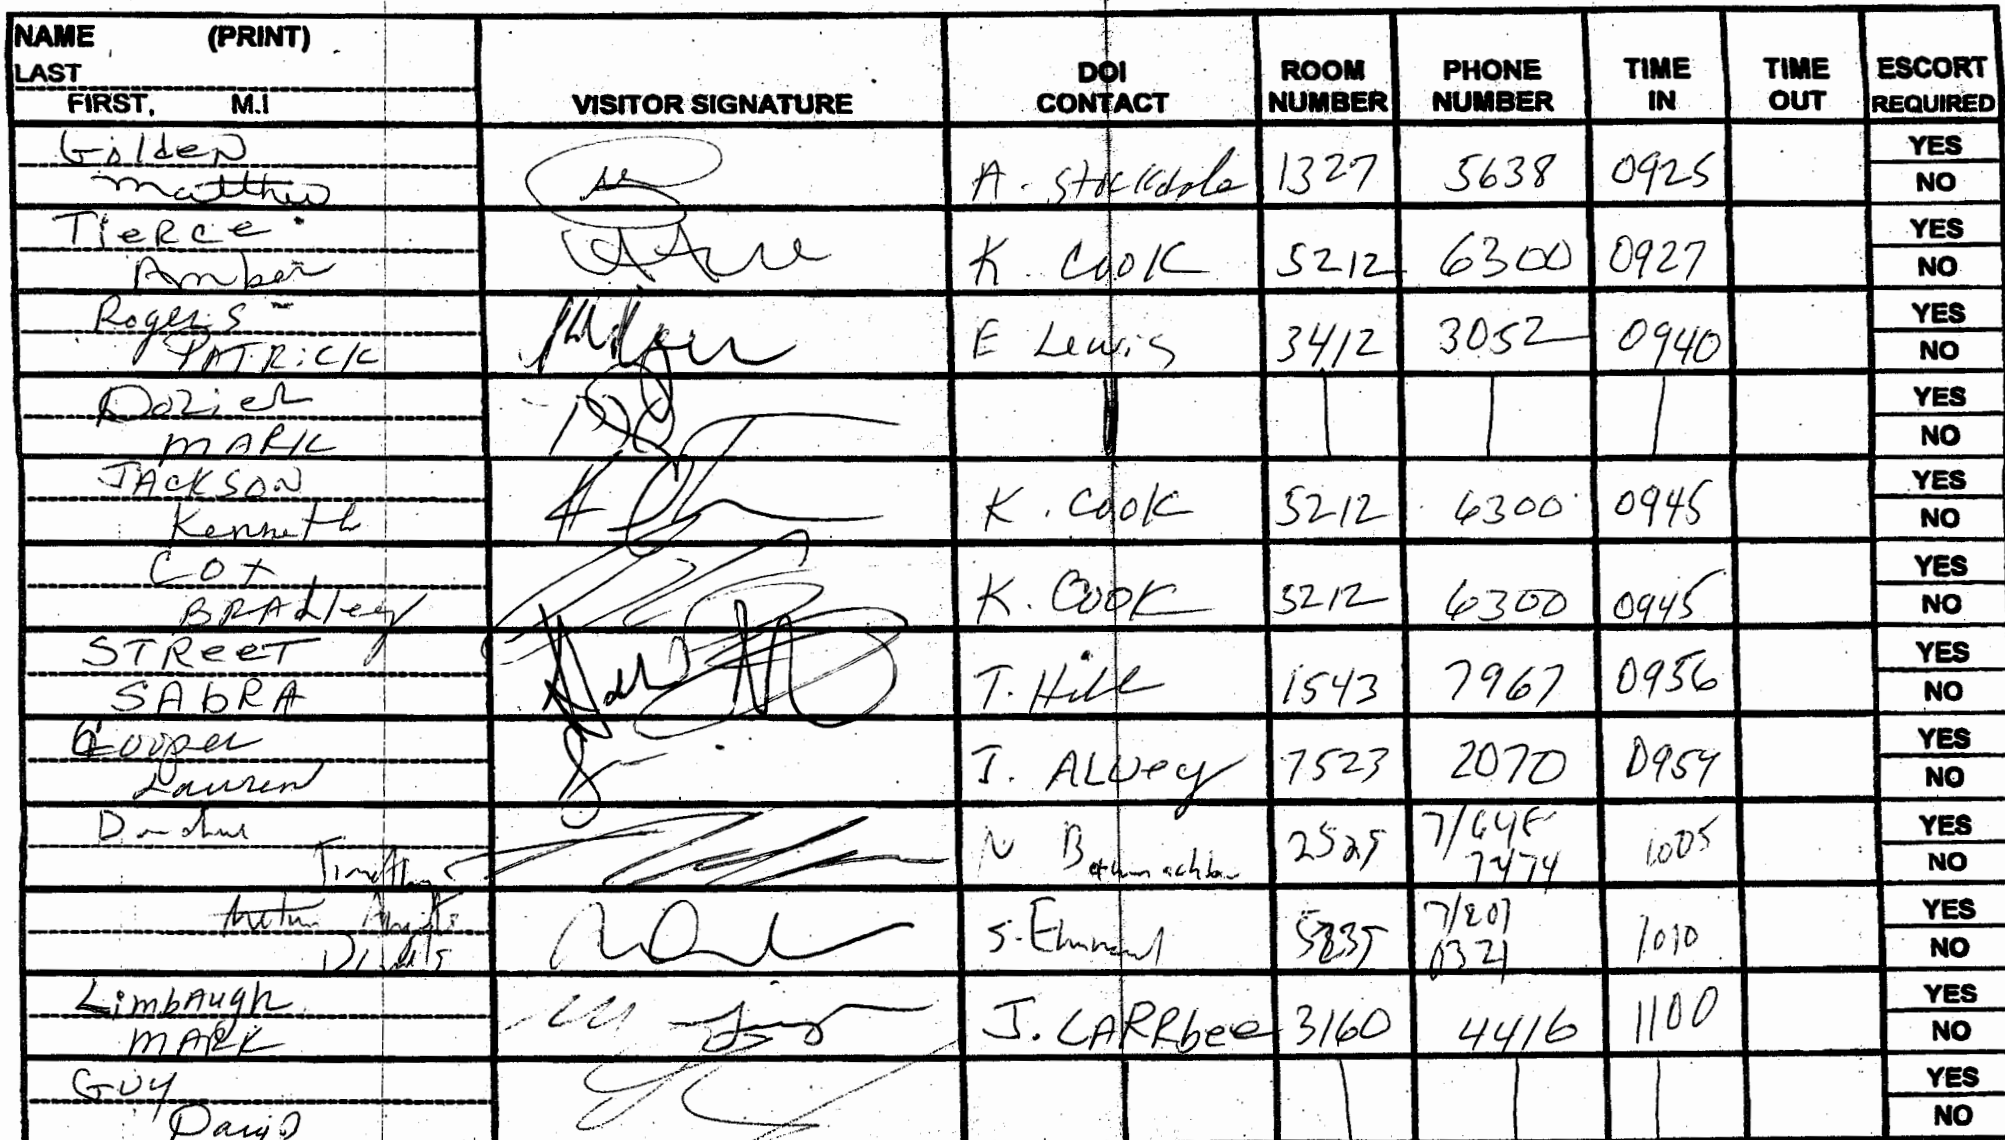 NAME (PRINT)
LAST
FIRST, M.I
VISITOR SIGNATURE
DOI CONTACT
ROOM NUMBER
PHONE NUMBER
TIME IN
TIME OUT
ESCORT REQUIRED
Golden
Matthew A. Stockdale 1327 5638 0925 YES NO
Tierce
Amber K. Cook 5212 6300 0927 YES NO
Rogers
PATRICK E Lewis 3412 3052 0940 YES NO
Dozier
MARK YES NO
JACKSON
Kenneth K. Cook 5212 6300 0945 YES NO
Cox
BRADley K. Cook 5212 6300 0945 YES NO
STReeT
SAbRA T. Hill 1543 7967 0956 YES NO
Cooper
Lauren J. ALvey 7523 2070 0959 YES NO
Timothy N 2525 7474 1005 YES NO
S. 1010 YES NO
LimbAugh
MARK J. LARRbee 3160 4416 1100 YES NO
Guy
David YES NO